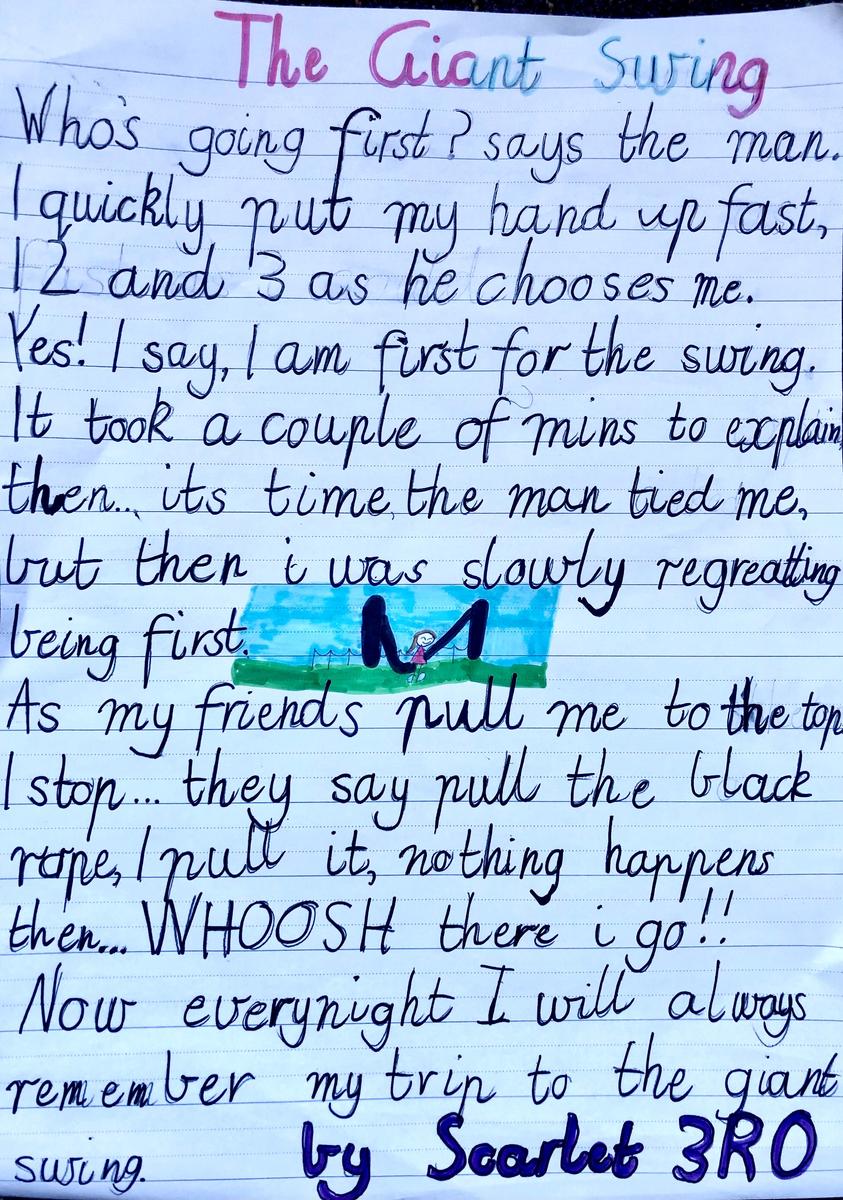 The Giant Swing
Who's going first? says the man.
I quickly put my hand up fast,
1 2 and 3 as he chooses me.
Yes! I say, I am first for the swing.
It took a couple of mins to explain,
then... its time, the man tied me,
but then i was slowly regreatting
being first.
As my friends pull me to the top
I stop... they say pull the black
rope, I pull it, nothing happens
then... WHOOSH there i go!!
Now everynight I will always
remember my trip to the giant
swing. by Scarlet 3RO